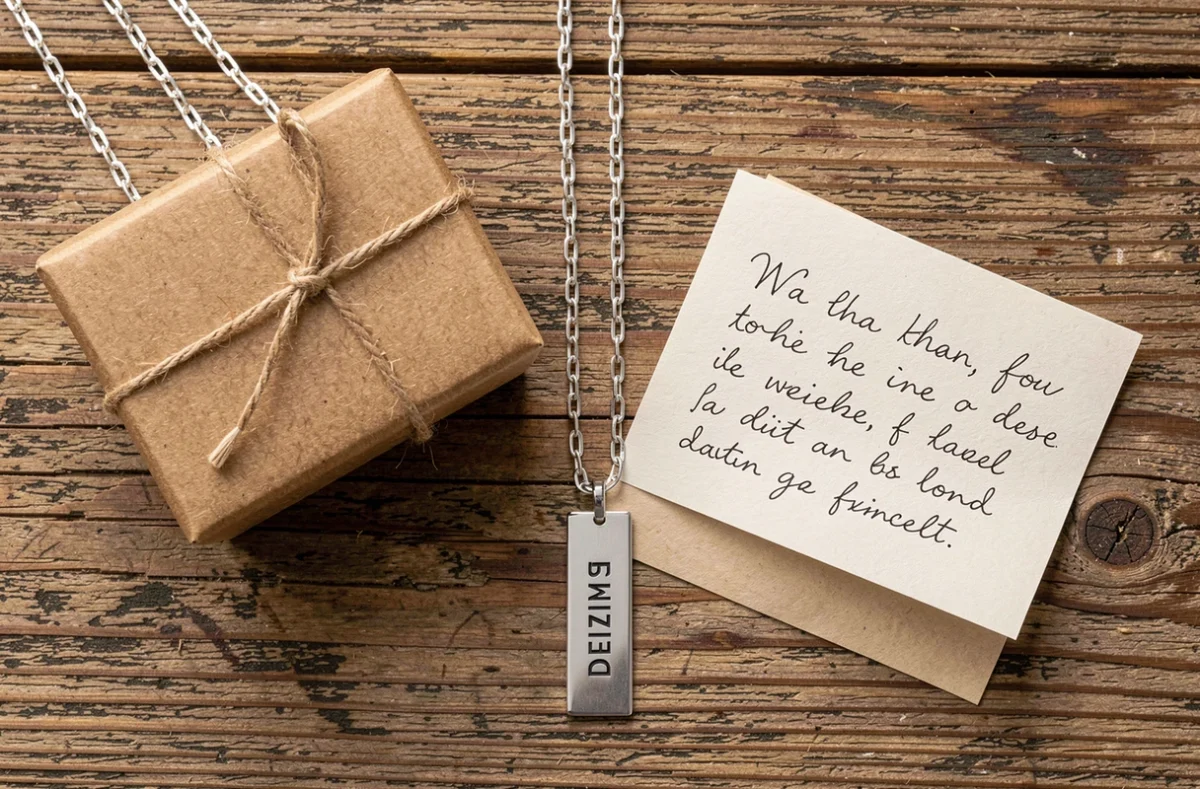 DEIZIM9
Wa lha khan, fou
tohie he ine a dese
ile weiehe, f havel
fa diit an bs lond
davtin ga fxincelt.